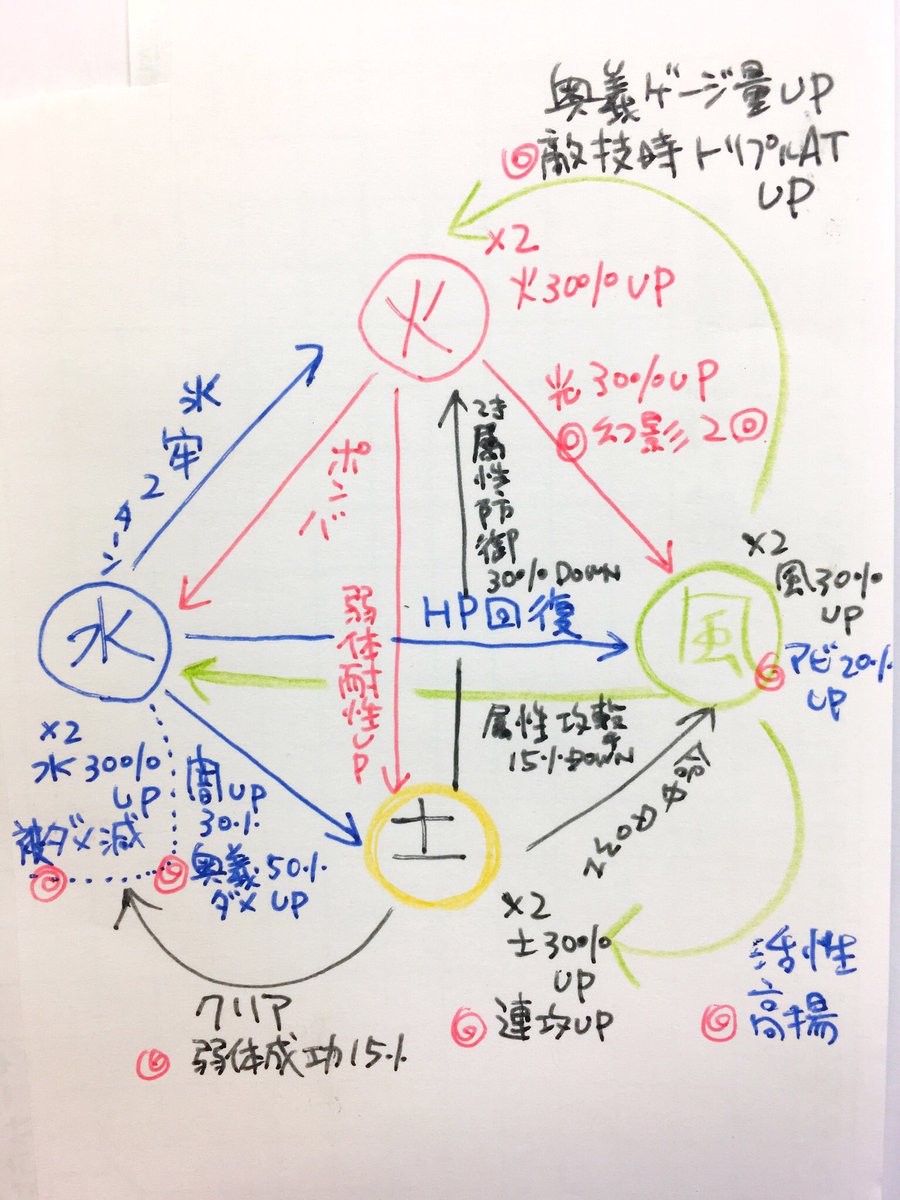 奥義ゲージ量UP
敵技時トリプルAT
UP
×2
火30%UP
火
光30%UP
幻影2回
氷牢
2ターン
ボンバ
属性防御
30%DOWN
弱体耐性UP
HP回復
水
風
×2
風30%
UP
アビ20%
UP
属性攻撃
15%DOWN
×2
水30%
UP
被ダメ減
闇UP
30%
奥義50%
ダメUP
土
×2
土30%
UP
連攻UP
活性
高揚
クリア
弱体成功15%